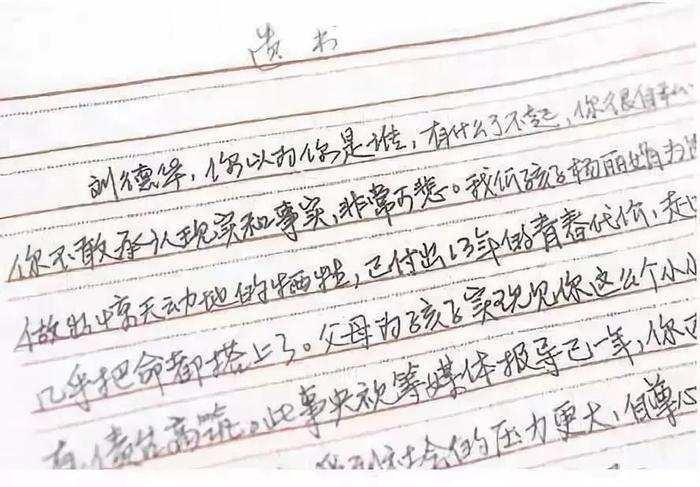 遗书
刘德华,你以为你是谁,有什么了不起,你很自私
你不敢承认现实和事实,非常可悲。我们孩子杨丽娟为
做出惊天动地的牺牲,已付出13年的青春代价,走
几乎把命都搭上了。父母为孩子实现见你这么个小小
在,债台高筑。此事央视等媒体报导已一年,你
社会的压力更大,自尊心